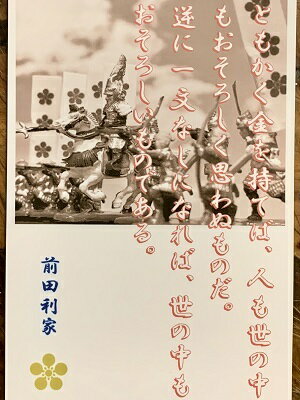 ともかく金を持てば、人も世の中
もおそろしく思わぬものだ。
逆に一文なしになれば、世の中も
おそろしいものである。
前田利家